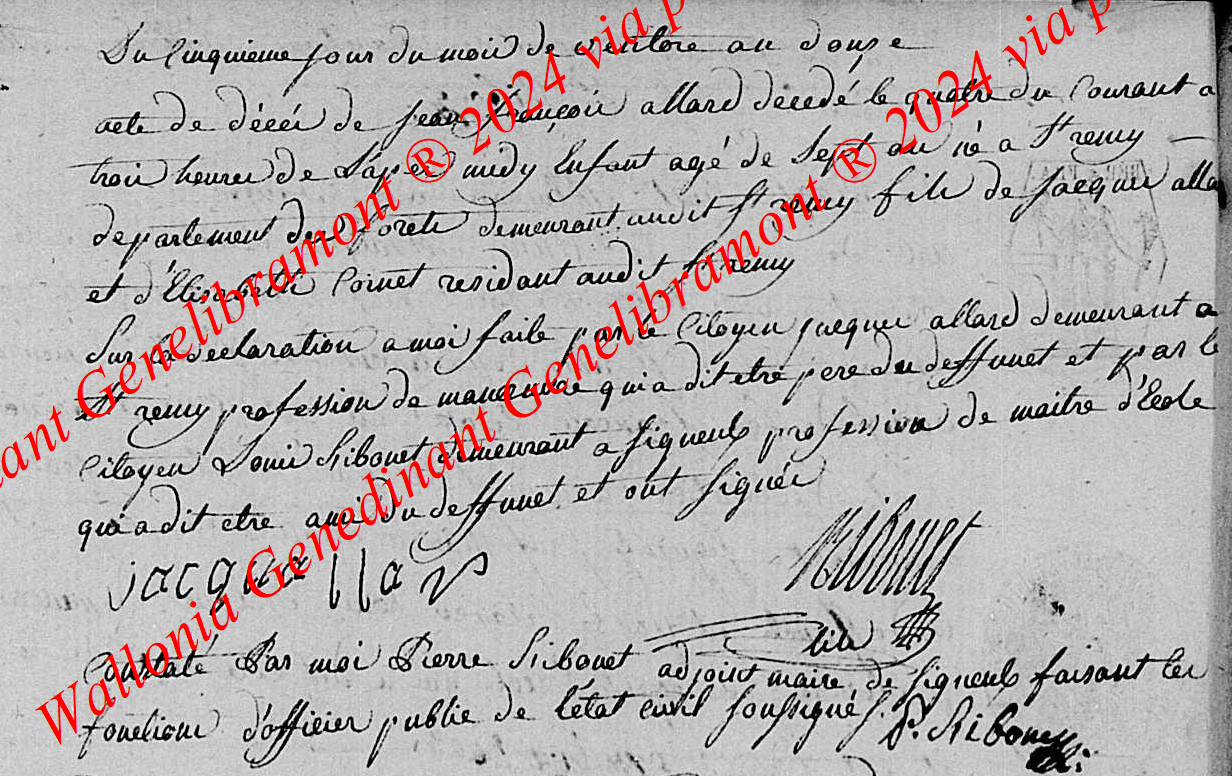 Du Cinquieme jour du mois de ventose an douze
acte de décés de jean françois allard decedé le quatre du Courant a
trois heures de L'apres midy Enfant agé de Sept ans né a St remy —
departement des forets demeurant audit St remy fils de Jacques alla
et d'Elisabeth Cornet residant audit St remy
Sur la declaration a moi faite par le Citoyen jacques allard demeurant a
St remy profession de manoeuvre qui a dit etre pere du deffunct et par le
Citoyen Louis Ribonet demeurant a Signeulx profession de maitre d'Ecole
qui a dit etre ami du deffunct et ont Signés
jacque llar
Ribonet
Constaté Par moi Pierre Ribonet adjoint maire de Signeulx faisant les
fonctions d'officier public de l'état civil Soussigné /. P. Ribonet
Wallonia Genedinant Genelibramont ® 2024 via p
nant Genelibramont ® 2024 via p